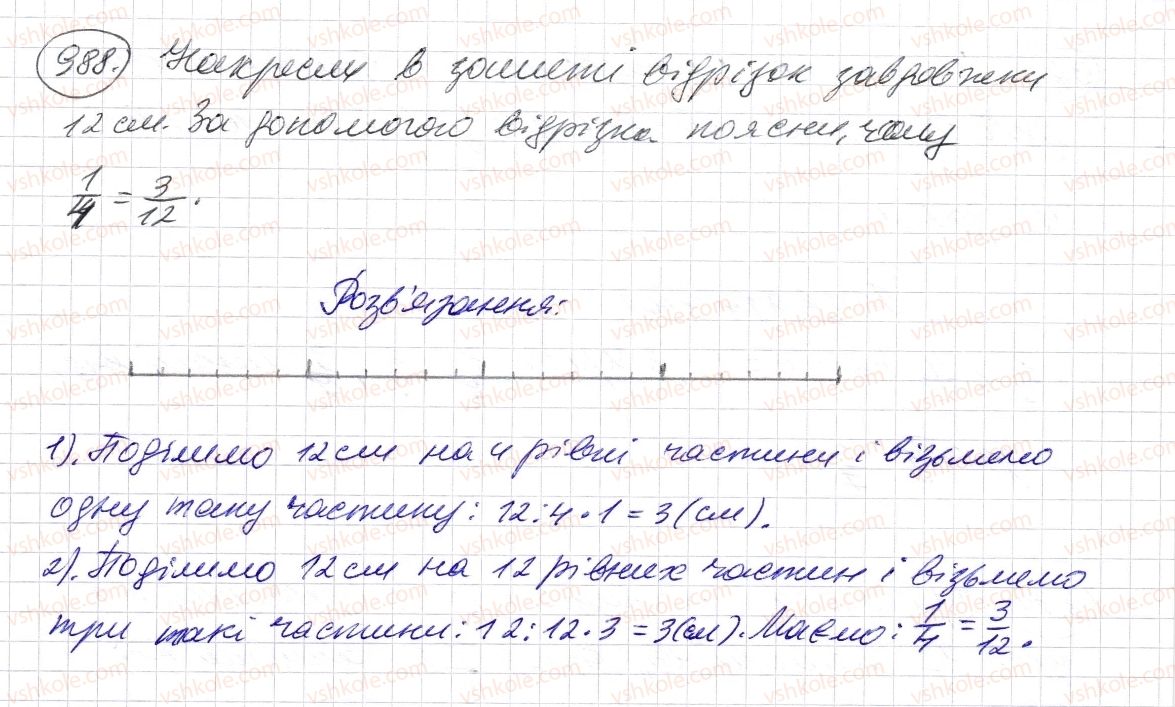 988. Накресли в зошиті відрізок завдовжки
12 см. За допомогою відрізка поясни, чому
1/4 = 3/12.
Розв'язання:
1). Поділимо 12 см на 4 рівні частини і візьмемо
одну таку частину: 12:4·1=3(см).
2). Поділимо 12 см на 12 рівних частин і візьмемо
три такі частини: 12:12·3=3(см). Маємо: 1/4 = 3/12.